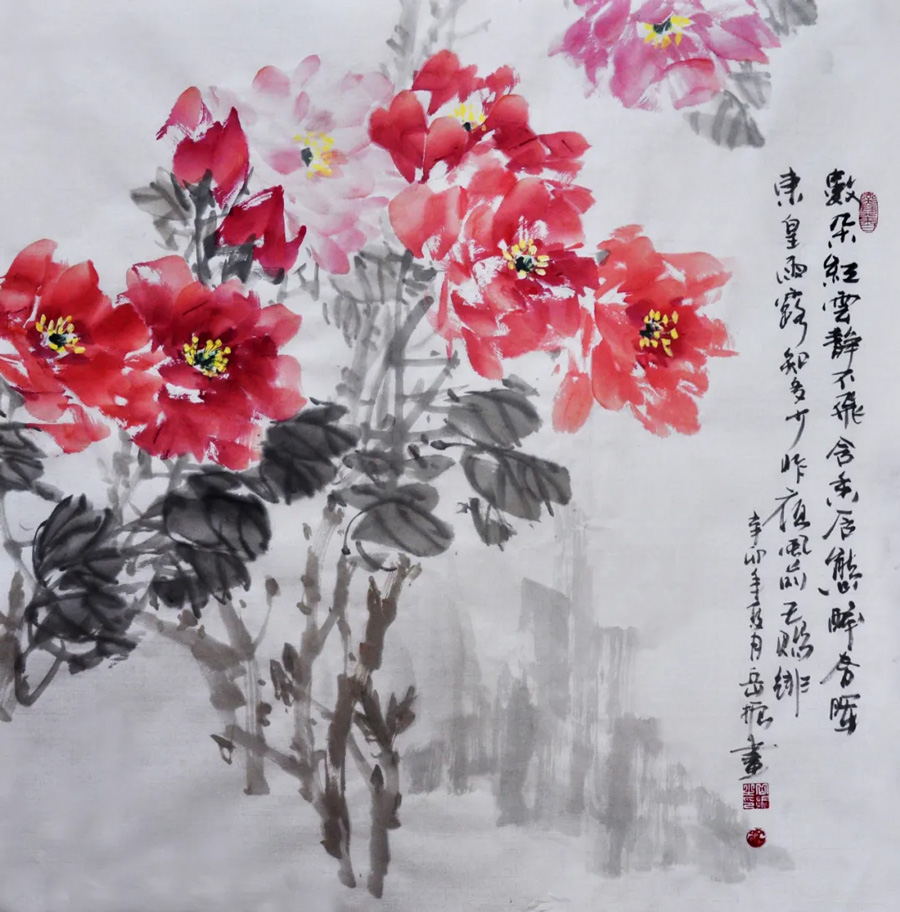 數朵紅雲靜不飛含香含態醉春暉
東皇雨露知多少昨夜風前已賜緋
辛卯年春月岳振畫